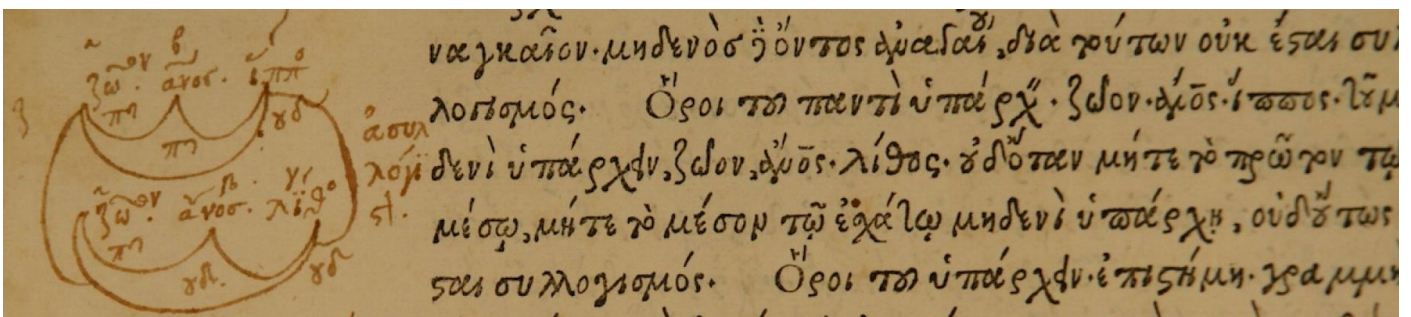 ζῶον. β ἄνος. ἵππο
πα
ουδ
πα
ζῶον. β ἄνος. γ λίθο
πα
ουδ. ουδ
ἀσυλ
λόγι
στ.
ναγκαῖον· μηδενὸς δὲ ὄντος ἀναγκαίου, διὰ τούτων οὐκ ἔσται συλ
λογισμός. Ὅροι τοῦ παντὶ ὑπάρχειν· ζῶον· ἄνος· ἵππος· τοῦ μη
δενὶ ὑπάρχειν, ζῶον, ἄνος· λίθος· οὐδ' ὅταν μήτε τὸ πρῶτον τῷ
μέσῳ, μήτε τὸ μέσον τῷ ἐσχάτῳ μηδενὶ ὑπάρχῃ, οὐδ' οὕτως
σται συλλογισμός. Ὅροι τοῦ ὑπάρχειν· ἐπιστήμη· γραμμὴ